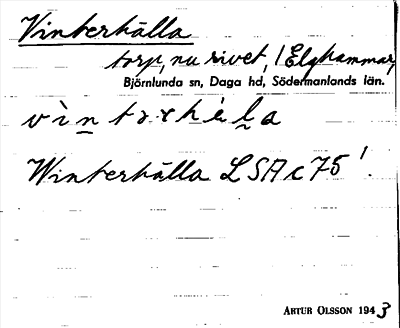 Vinterkälla
torp, nu rivet, /Elghammar/
Björnlunda sn, Daga hd, Södermanlands län.
Winterkälla LSA c 75'.
ARTUR OLSSON 1943